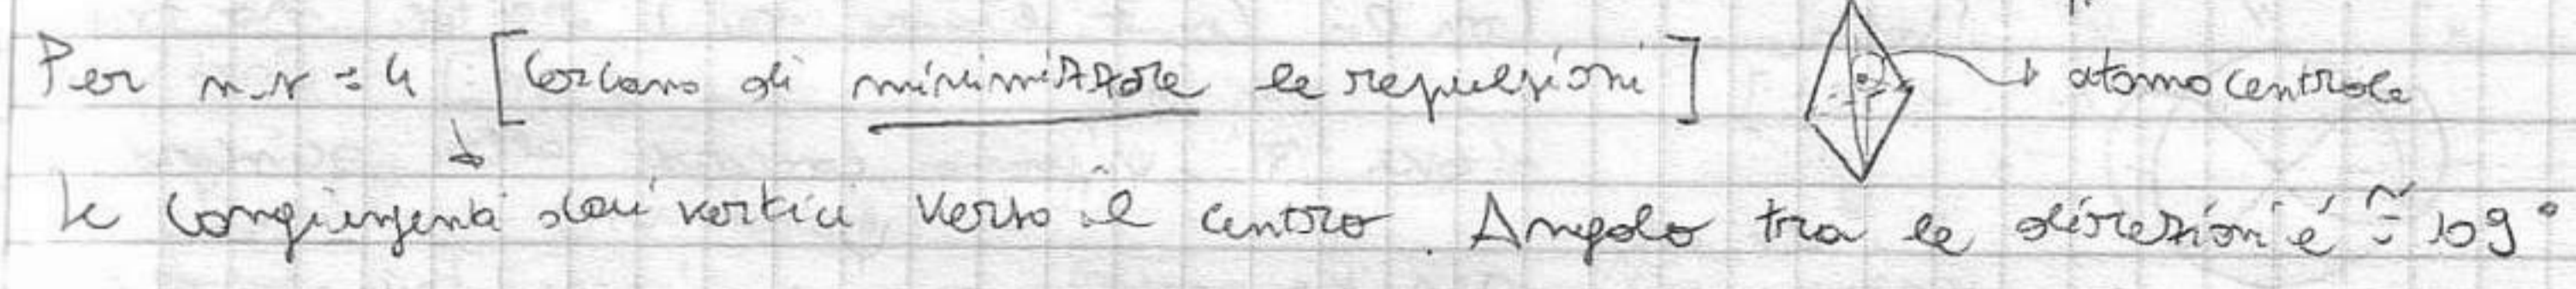 Per n.r = 4 [Cercano di minimizzare le repulsioni] atomo centrale
le congiungenti dai vertici verso il centro. Angolo tra le direzioni é ≅ 109°